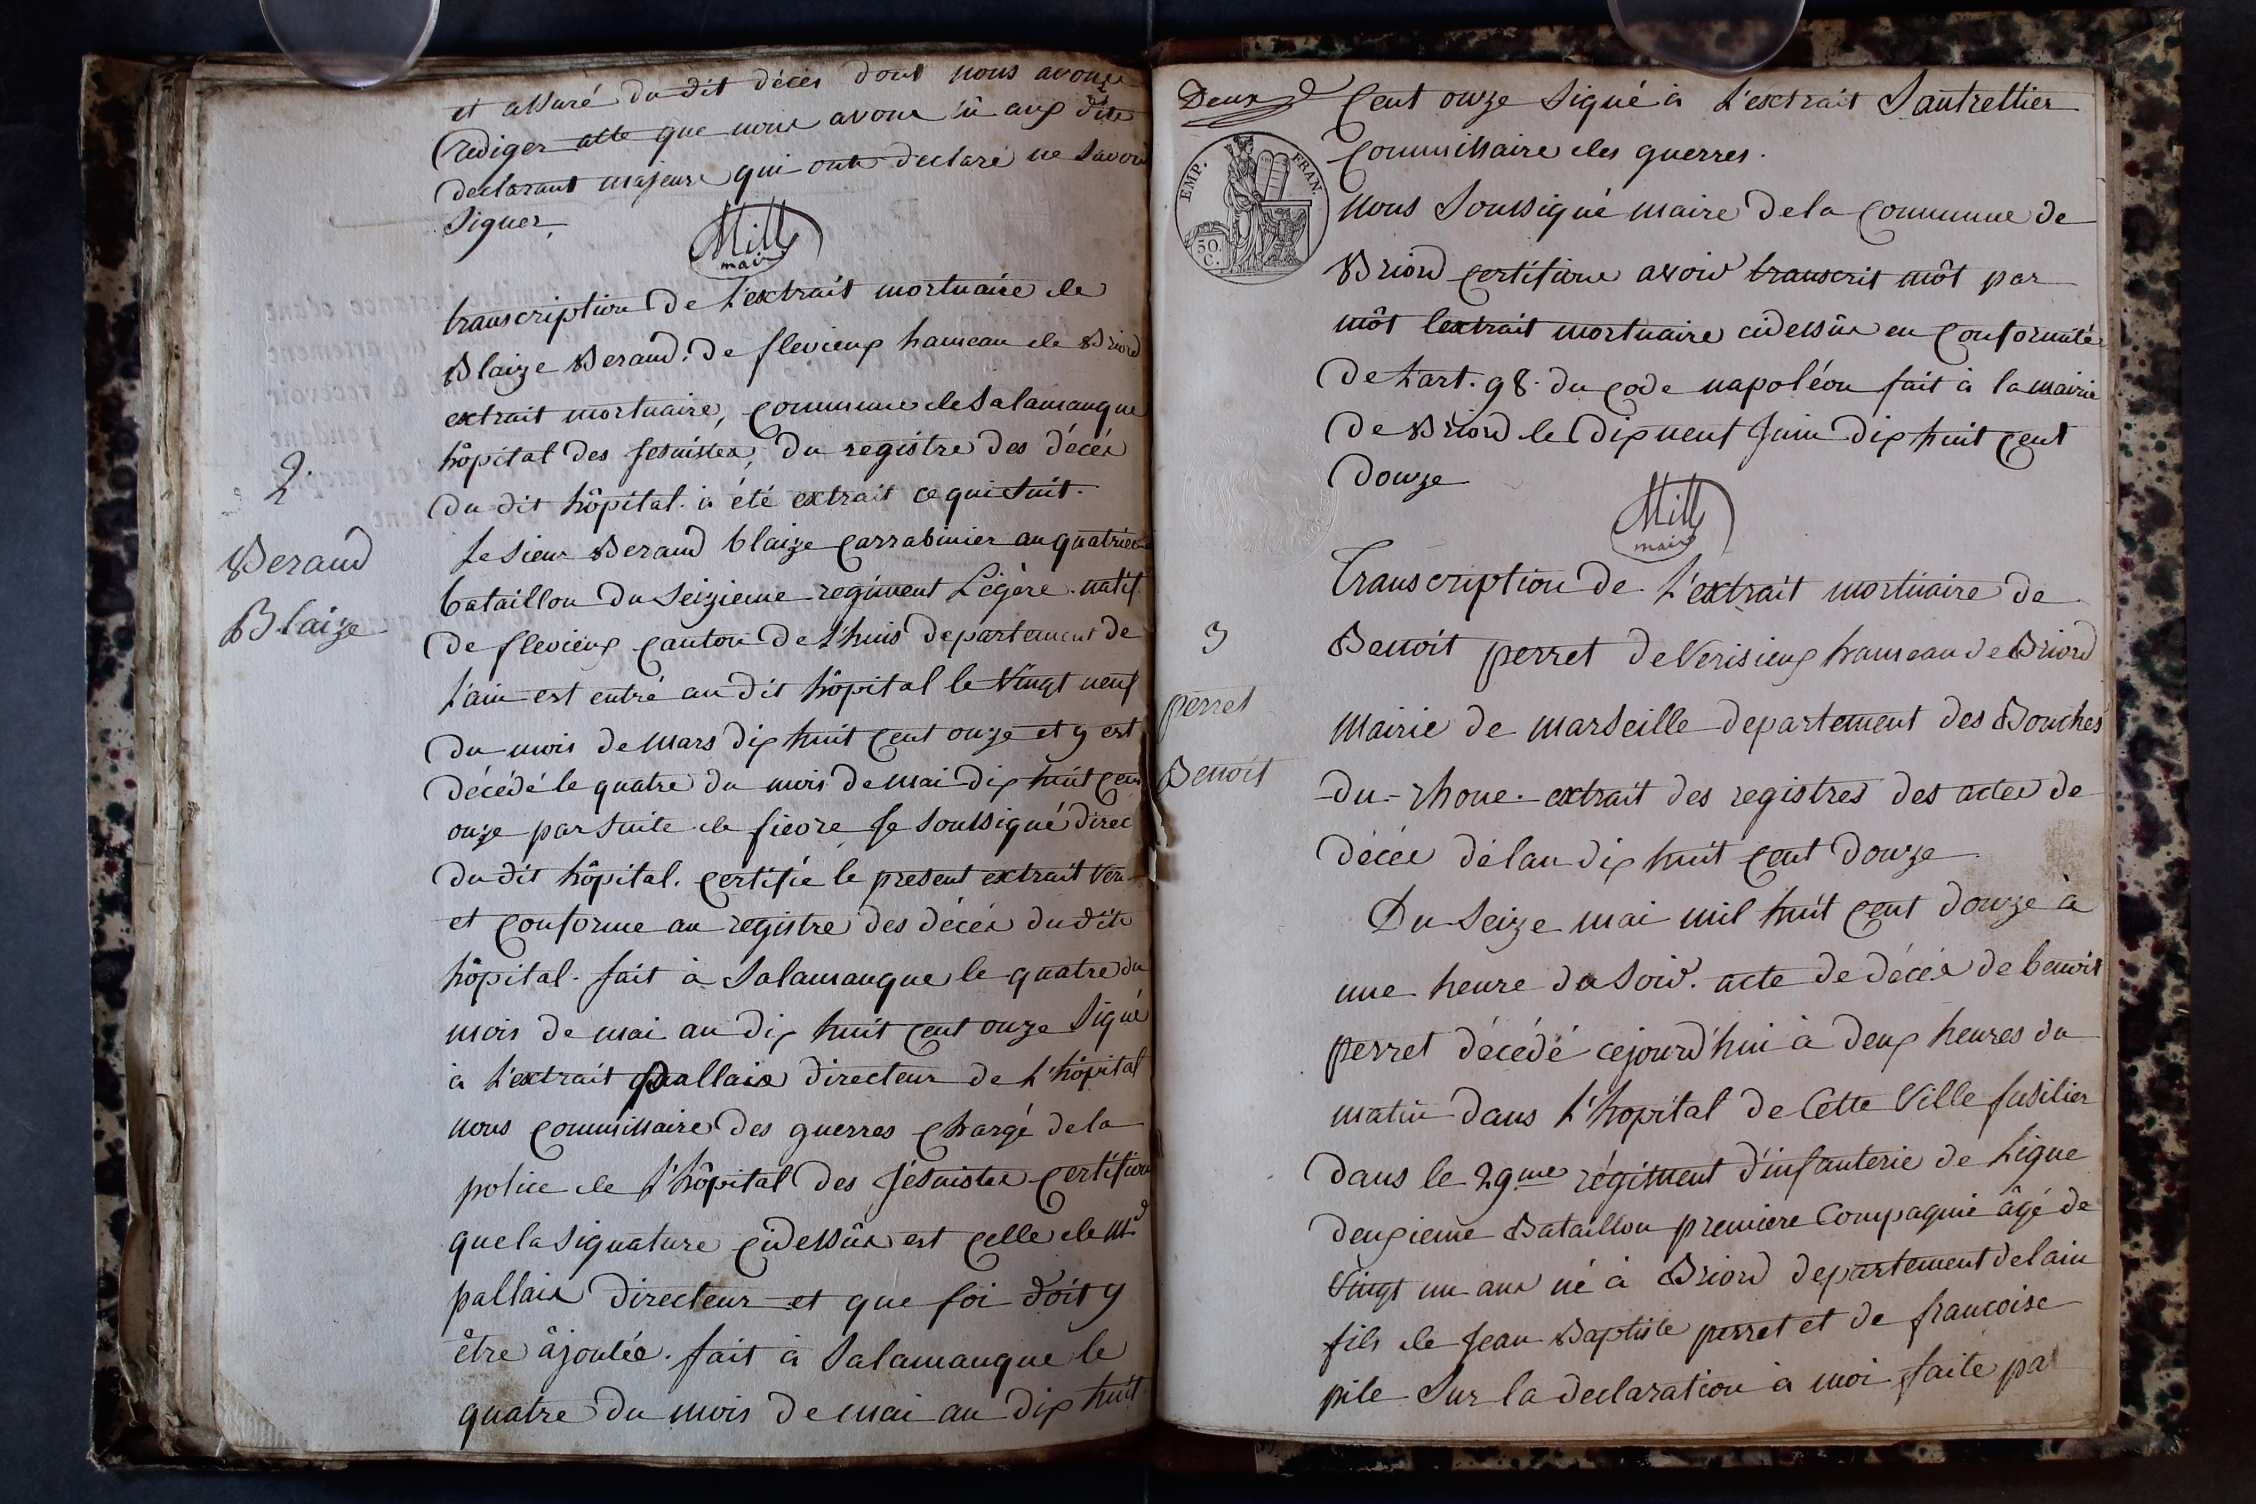 et assuré du dit décès dont nous avons
rediger acte que nous avons lû aux dits
declarant majeurs qui ont declaré ne savoir
signer,
Mill
maire
transcription de l'extrait mortuaire de
Blaize Beraud. de flevieux hameau de Briord
extrait mortuaire, commune de Salamanque
hôpital des jesuistes, du registre des décés
du dit hôpital. à été extrait ce qui suit.
2.
Beraud
Blaize
Le sieur Beraud blaize carrabinier au quatriem
bataillon du seizieme regiment Légère. natif
de flevieux canton de l'huis departement de
l'ain est entré au dit hôpital le vingt neuf
du mois de mars dix huit cent onze et y est
décédé le quatre du mois de mai dix huit cent
onze par suite de fievre je soussigné direc
du dit hôpital. certifie le present extrait veri
et conforme au registre des décés du dite
hôpital. fait à Salamanque le quatre du
mois de mai an dix huit cent onze signé
à l'extrait pallais directeur de l'hôpital
nous commissaire des guerres chargé de la
police de l'hôpital des jésuistes certifions
que la signature cidessûs est celle de Mr
pallais directeur et que foi doit y
être âjoutée. fait à Salamanque le
quatre du mois de mai an dix huit
Deux
EMP. FRAN.
50 C.
cent onze signé à l'extrait Santrellier
commissaire des guerres.
nous soussigné maire de la commune de
Briord certifions avoir transcrit môt par
môt lextrait mortuaire cidessûs en conformité
de l'art. 98. du code napoléon fait à la mairie
de Briord le dix neuf juin dix huit cent
douze
Mill
maire
Transcription de l'extrait mortuaire de
3
perret
Benoit
Benoit perret de Verisieux hameau de Briord
mairie de marseille departement des Bouches
-du-rhone. extrait des registres des actes de
décée délan dix huit cent douze
Du seize mai mil huit cent douze à
une heure du soir. acte de décés de benoit
perret décédé cejourd'hui à deux heures du
matin dans l'hopital de cette ville fusilier
dans le 29me régiment d'infanterie de ligne
deuxieme Bataillon premiere compagnie âgé de
vingt un ans né à Briord departement delain
fils de jean Baptiste perret et de francoise
pile sur la declaration à moi faite par